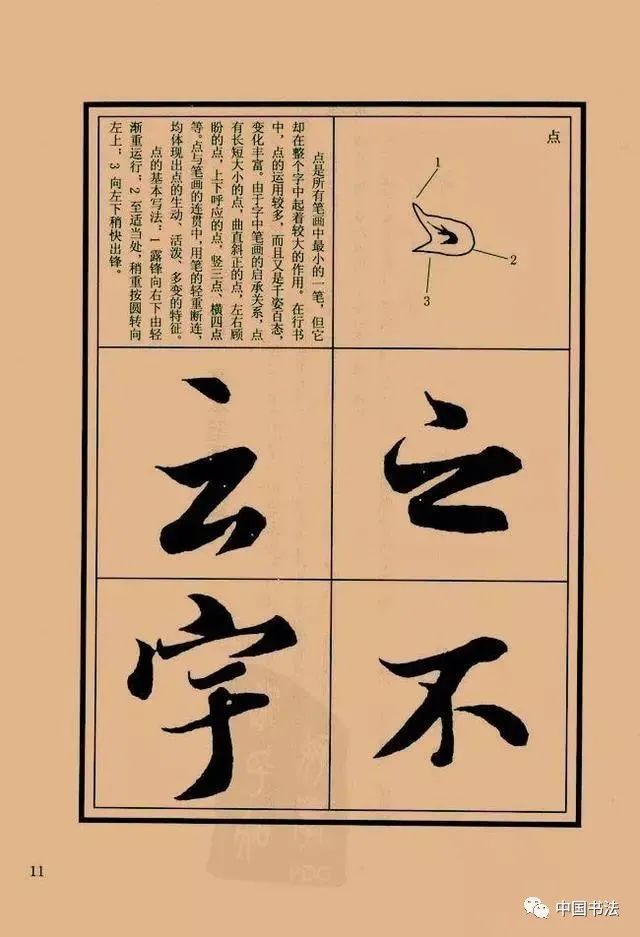 点
1
2
3
点是所有笔画中最小的一笔，但它
却在整个字中起着较大的作用。在行书
中，点的运用较多，而且又是千姿百态，
变化丰富。由于字中笔画的启承关系，点
有长短大小的点，曲直斜正的点，左右顾
盼的点，上下呼应的点，竖三点、横四点
等。点与笔画的连贯中，用笔的轻重断连，
均体现出点的生动、活泼、多变的特征。
点的基本写法：1 露锋向右下由轻
渐重运行；2 至适当处，稍重按圆转向
左上；3 向左下稍快出锋。
之
不
云
宇
PDG
11
中国书法